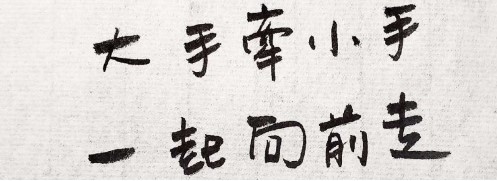 大手牵小手
一起向前走